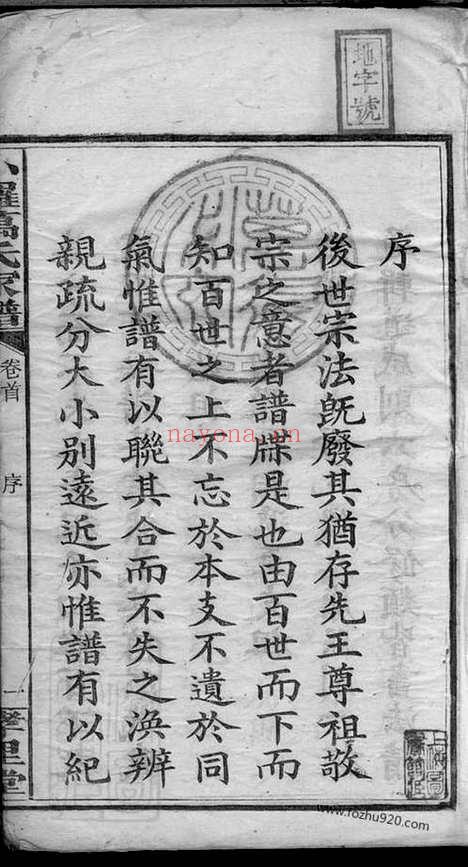 地字號
序
後世宗法既廢其猶存先王尊祖敬
宗之意者譜牒是也由百世而下而
知百世之上不忘於本支不遺於同
氣惟譜有以聯其合而不失之渙辨
親疏分大小別遠近亦惟譜有以紀
氏家譜
卷首
序
一
堂
nayona.cn
www.fozhu920.com